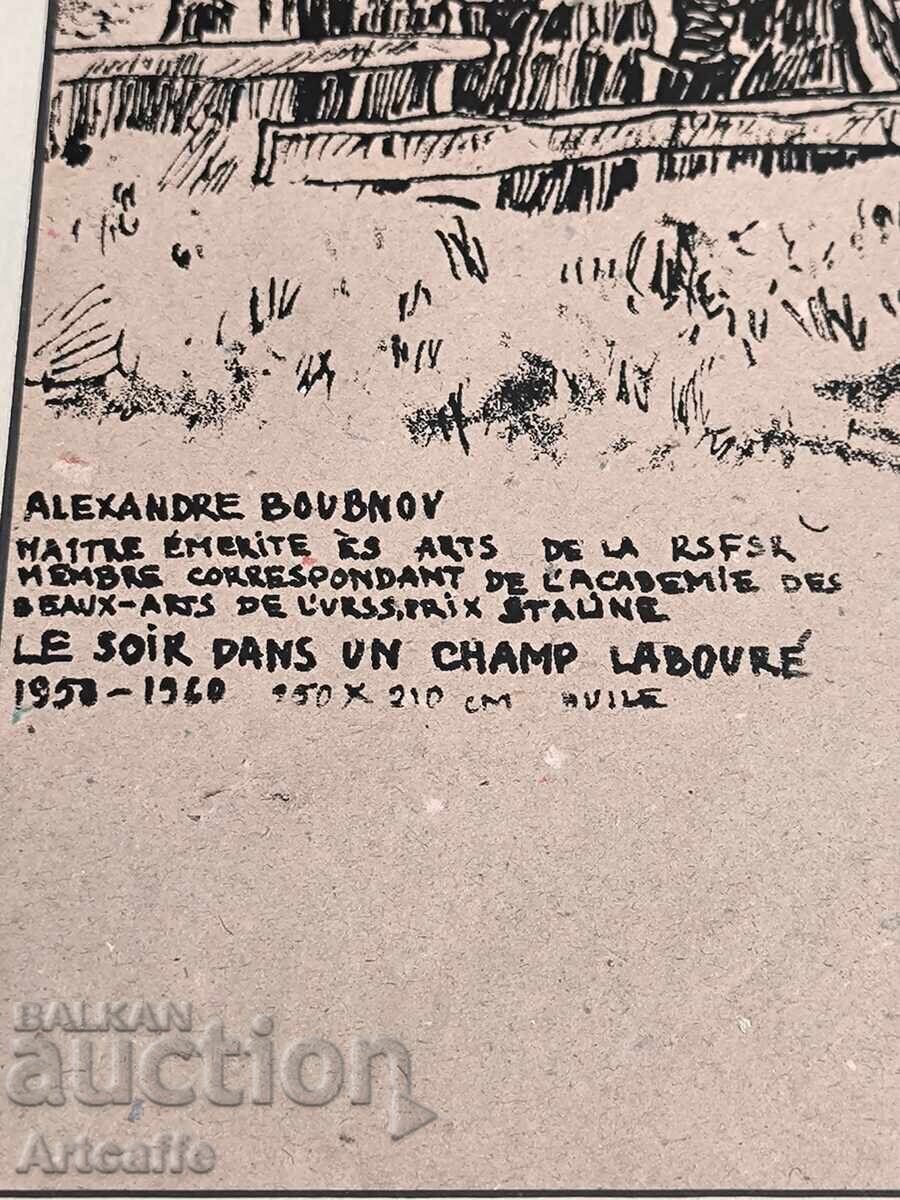 ALEXANDRE BOUBNOV
MAITRE ÉMERITE ÈS ARTS DE LA RSFSR
MEMBRE CORRESPONDANT DE L'ACADEMIE DES
BEAUX-ARTS DE L'URSS, PRIX STALINE
LE SOIR DANS UN CHAMP LABOURÉ
1958-1960 X 210 CM HUILE
BALKAN
auction
Artcaffe